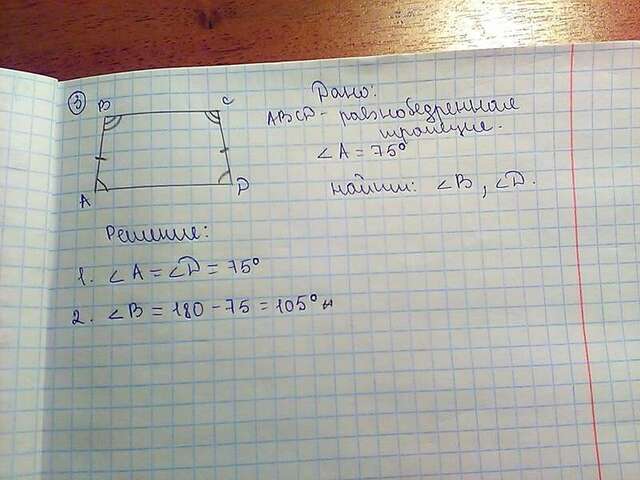 3
B C
A D
Дано:
ABCD - равнобедренная
трапеция.
∠A = 75°
Найти: ∠B, ∠D.
Решение:
1. ∠A = ∠D = 75°
2. ∠B = 180 - 75 = 105°